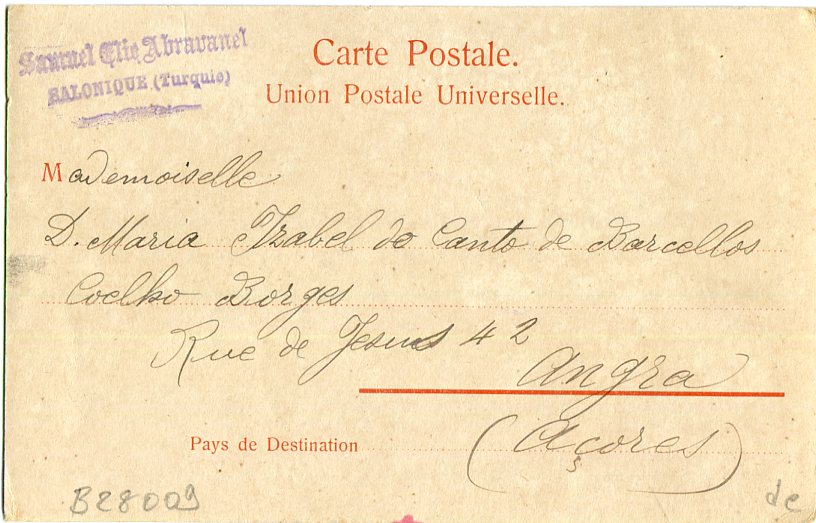 Samuel Elie Abravanel
SALONIQUE (Turquie)
Carte Postale.
Union Postale Universelle.
Mademoiselle
D. Maria Izabel do Canto de Barcellos
Coelho Borges
Rue de Jesus 42
Angra
Pays de Destination (Açores)
B28009
de